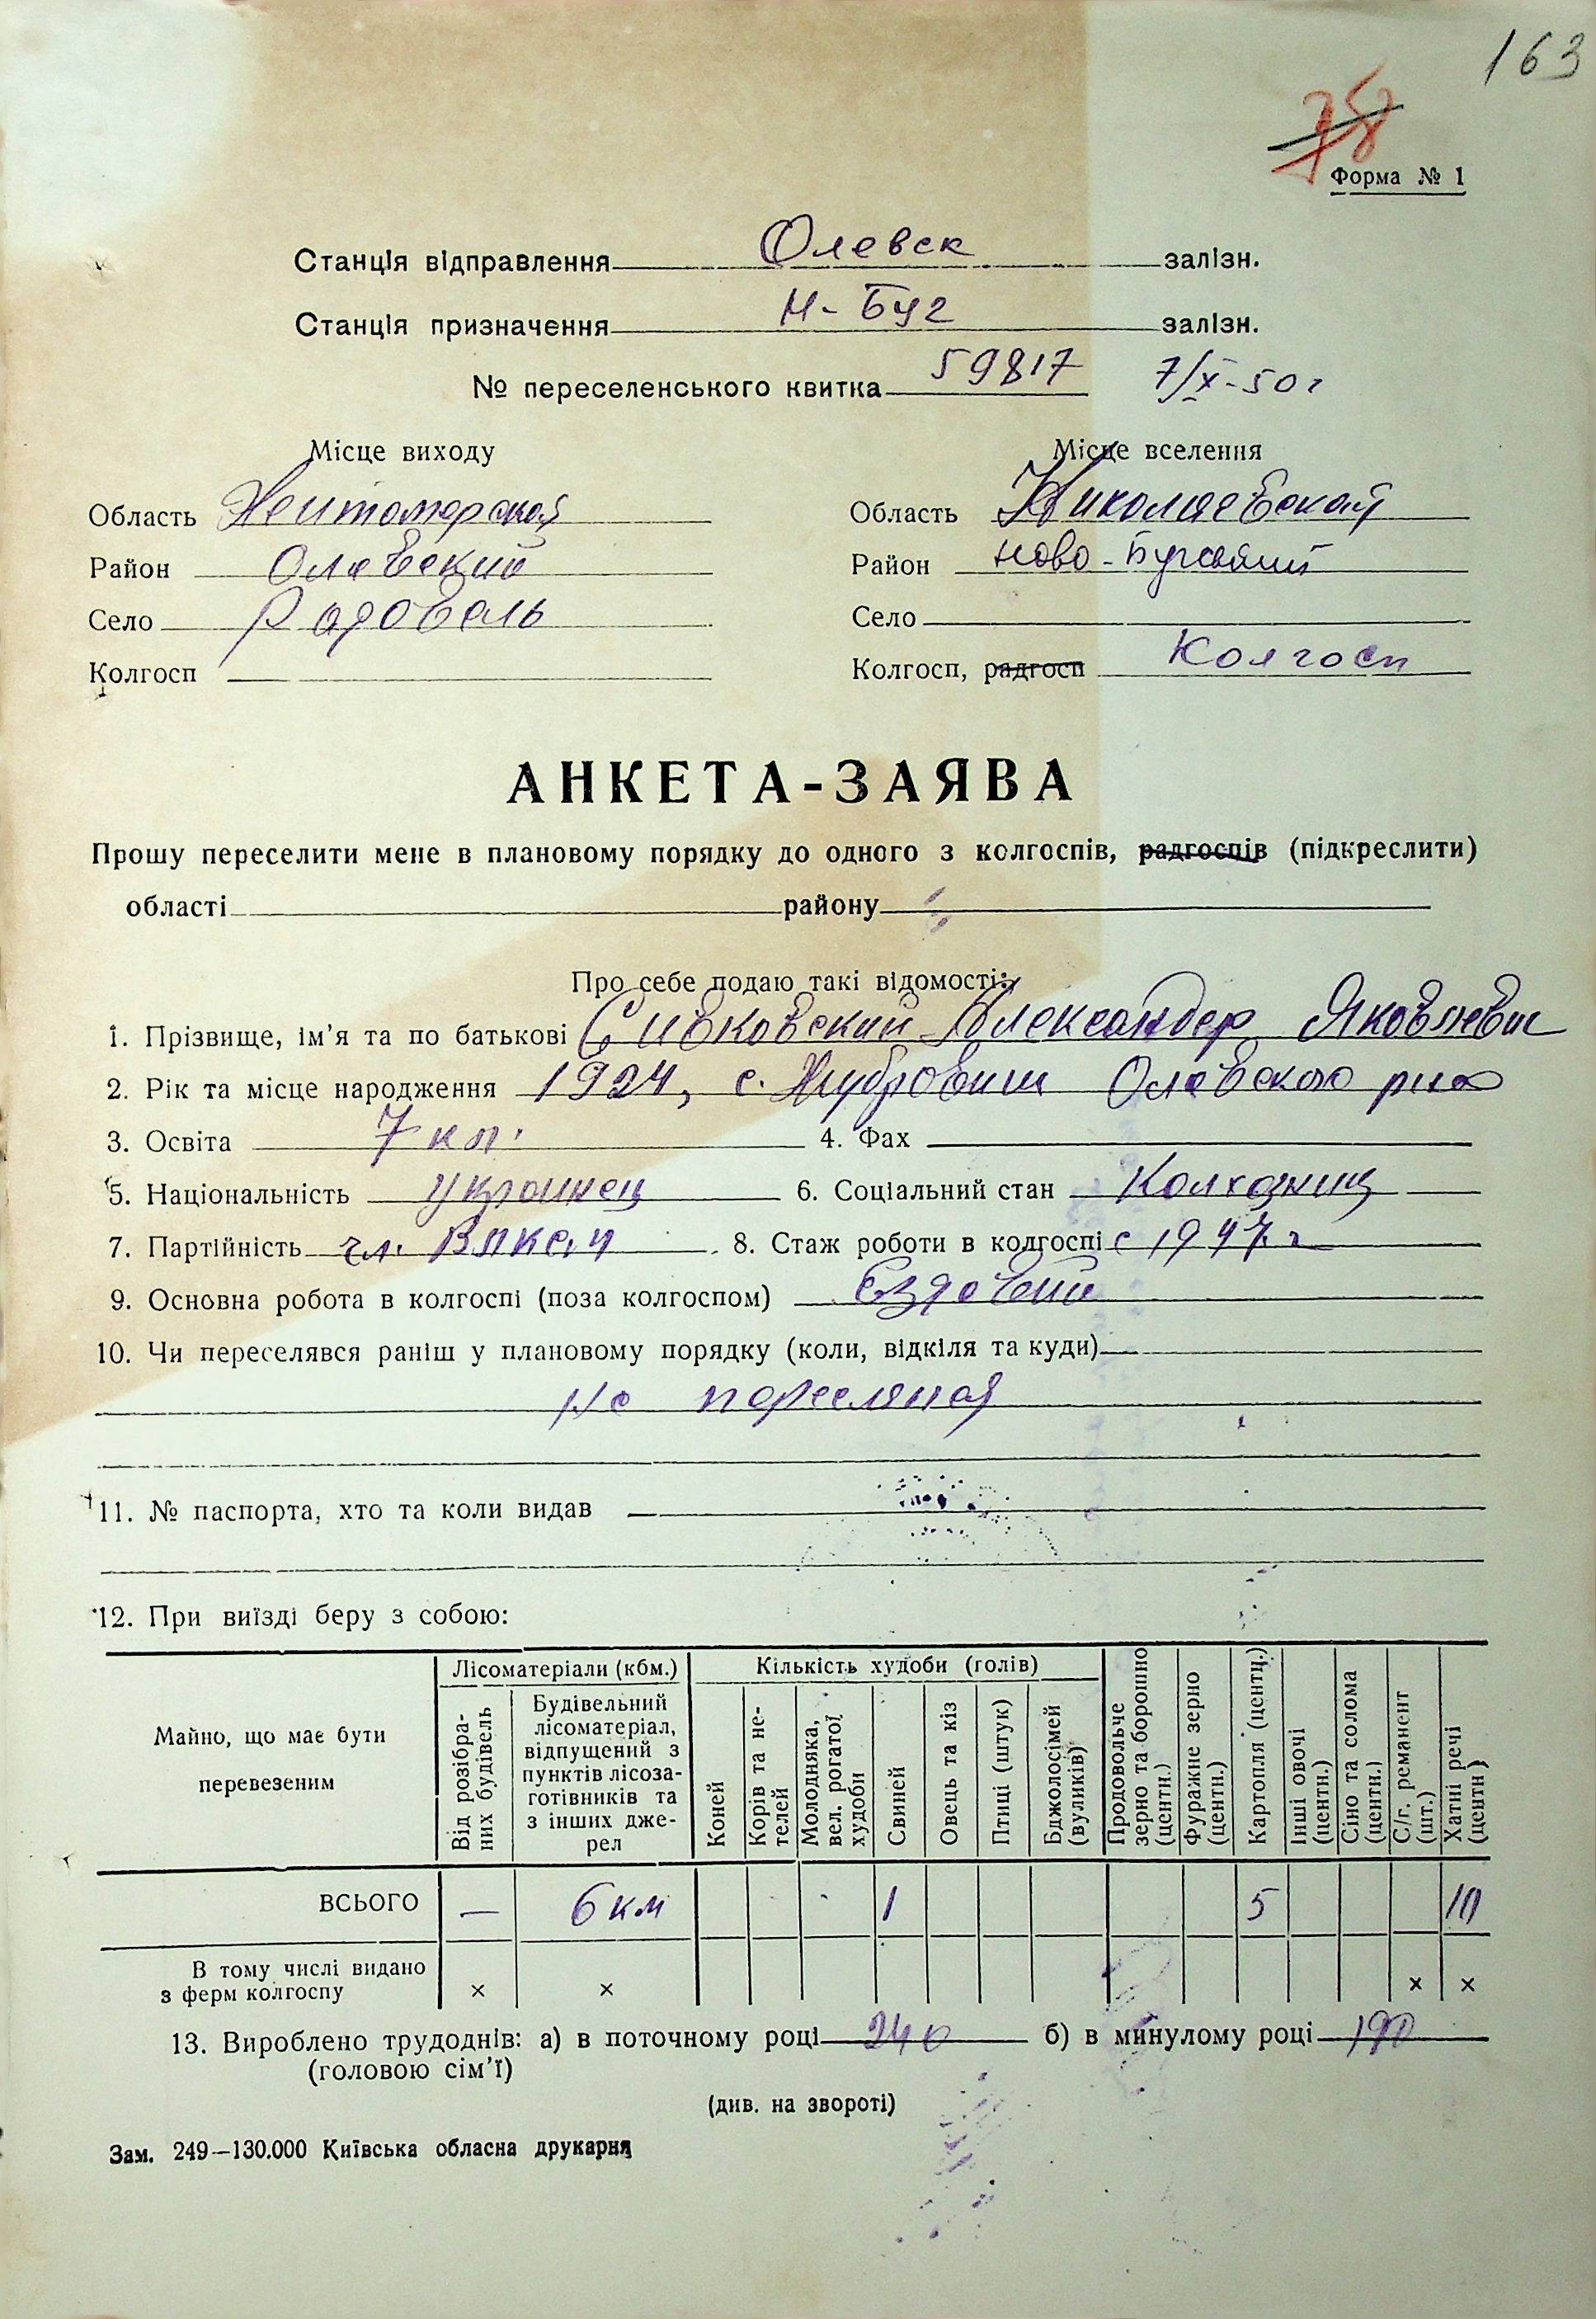 163
78
Форма № 1
Станція відправлення Олевск залізн.
Станція призначення Н-Буг залізн.
№ переселенського квитка 59817 7/X-50г
Місце виходу Місце вселення
Область Житомирской Область Николаевской
Район Олевский Район Ново-Бугский
Село Радовель Село
Колгосп Колгосп, радгосп Колгосп
АНКЕТА-ЗАЯВА
Прошу переселити мене в плановому порядку до одного з колгоспів, радгоспів (підкреслити)
області району
Про себе подаю такі відомості:
1. Прізвище, ім'я та по батькові Сивковский Александер Яковлевич
2. Рік та місце народження 1924, с. Жубровичи Олевского р-на
3. Освіта 7 кл. 4. Фах
5. Національність украинец 6. Соціальний стан Колхозниц
7. Партійність чл. ВЛКСМ 8. Стаж роботи в колгоспі с 1947 г
9. Основна робота в колгоспі (поза колгоспом) Ездовый
10. Чи переселявся раніш у плановому порядку (коли, відкіля та куди)
не
11. № паспорта, хто та коли видав
12. При виїзді беру з собою:
Майно, що має бути перевезеним
Лісоматеріали (кбм.)
Від розібраних будівель
Будівельний лісоматеріал, відпущений з пунктів лісозаготівників та з інших джерел
Кількість худоби (голів)
Коней
Корів та нетелей
Молодняка, вел. рогатої худоби
Свиней
Овець та кіз
Птиці (штук)
Бджолосімей (вуликів)
Продовольче зерно та борошно (центн.)
Фуражне зерно (центн.)
Картопля (центн.)
Інші овочі (центн.)
Сіно та солома (центн.)
С/г. реманент (шт.)
Хатні речі (центн)
ВСЬОГО — 6 км 1 5 10
В тому числі видано з ферм колгоспу × × × ×
13. Вироблено трудоднів: а) в поточному році 240 б) в минулому році 190
(головою сім'ї)
(див. на звороті)
Зам. 249—130.000 Київська обласна друкарня